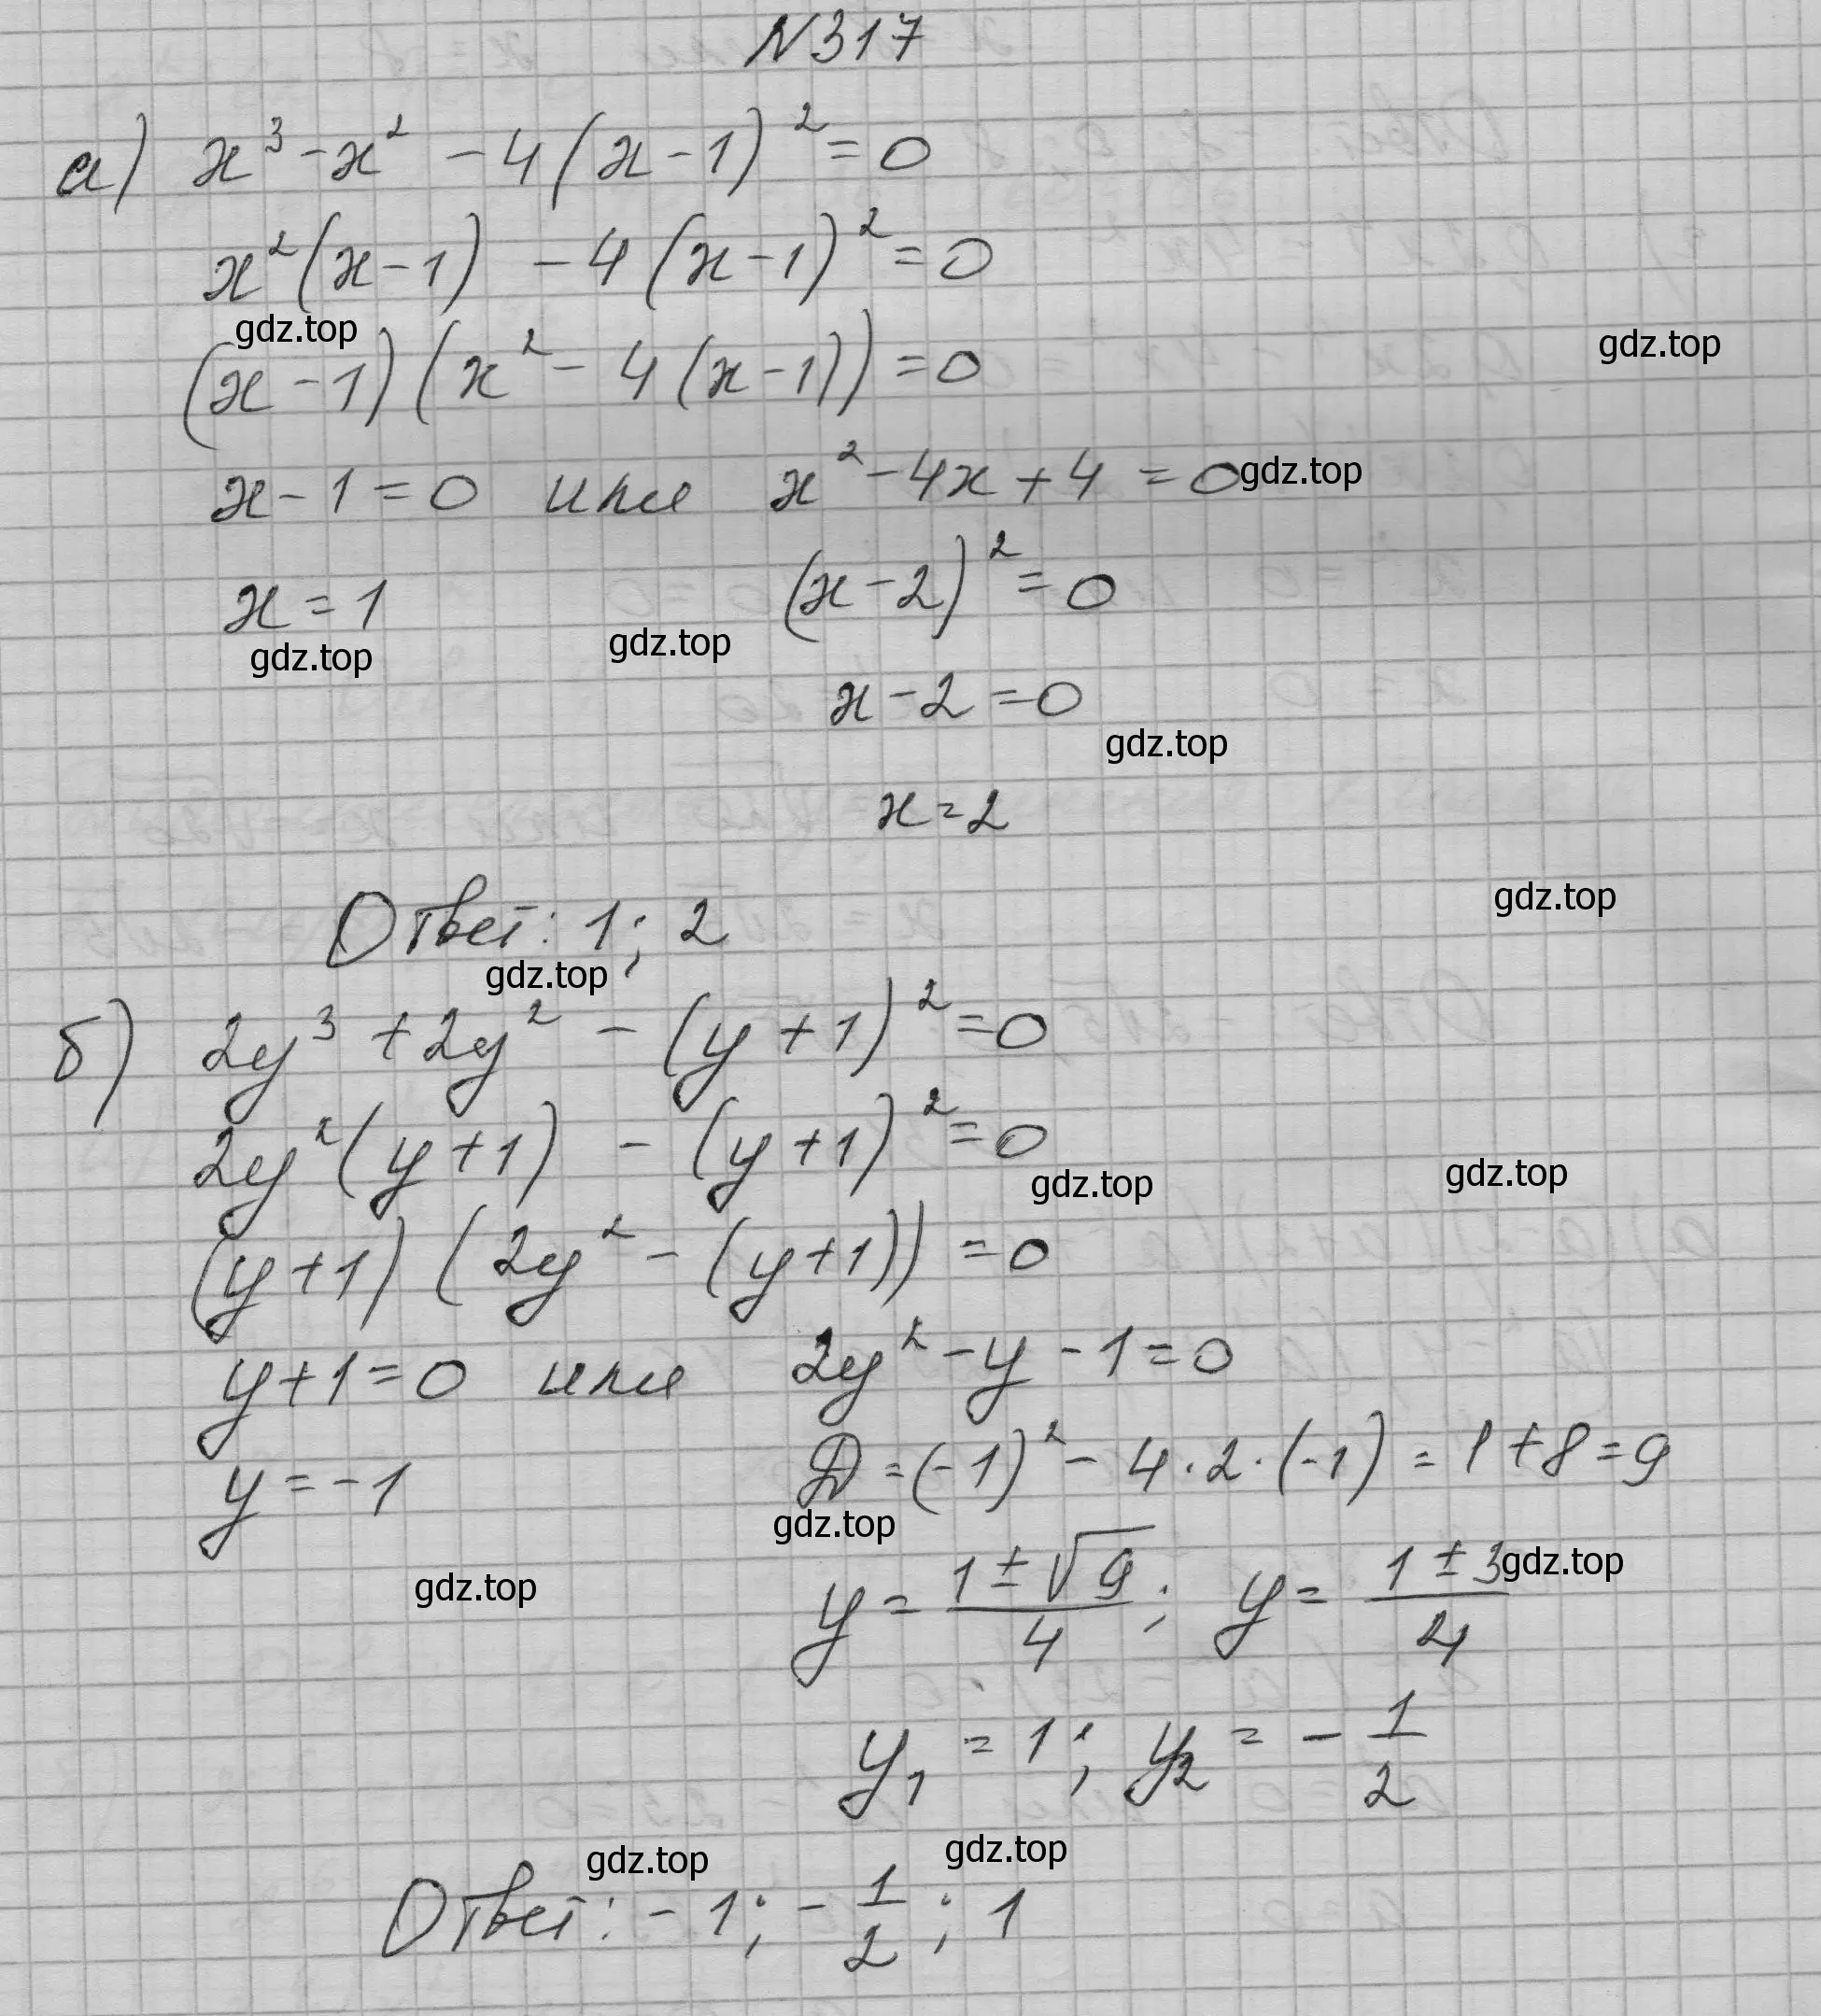 N317
а) x³ - x² - 4(x-1)² = 0
x²(x-1) - 4(x-1)² = 0
gdz.top
(x-1)(x² - 4(x-1)) = 0
gdz.top
x - 1 = 0 или x² - 4x + 4 = 0
gdz.top
x = 1 (x-2)² = 0
gdz.top
gdz.top
x - 2 = 0
gdz.top
x = 2
gdz.top
Ответ: 1; 2
gdz.top
б) 2y³ + 2y² - (y+1)² = 0
2y²(y+1) - (y+1)² = 0
gdz.top
gdz.top
(y+1)(2y² - (y+1)) = 0
y + 1 = 0 или 2y² - y - 1 = 0
y = -1 D = (-1)² - 4·2·(-1) = 1 + 8 = 9
gdz.top
gdz.top
y = (1 ± √9)/4; y = (1 ± 3)/4
gdz.top
y₁ = 1; y₂ = - 1/2
gdz.top
gdz.top
Ответ: -1; - 1/2; 1